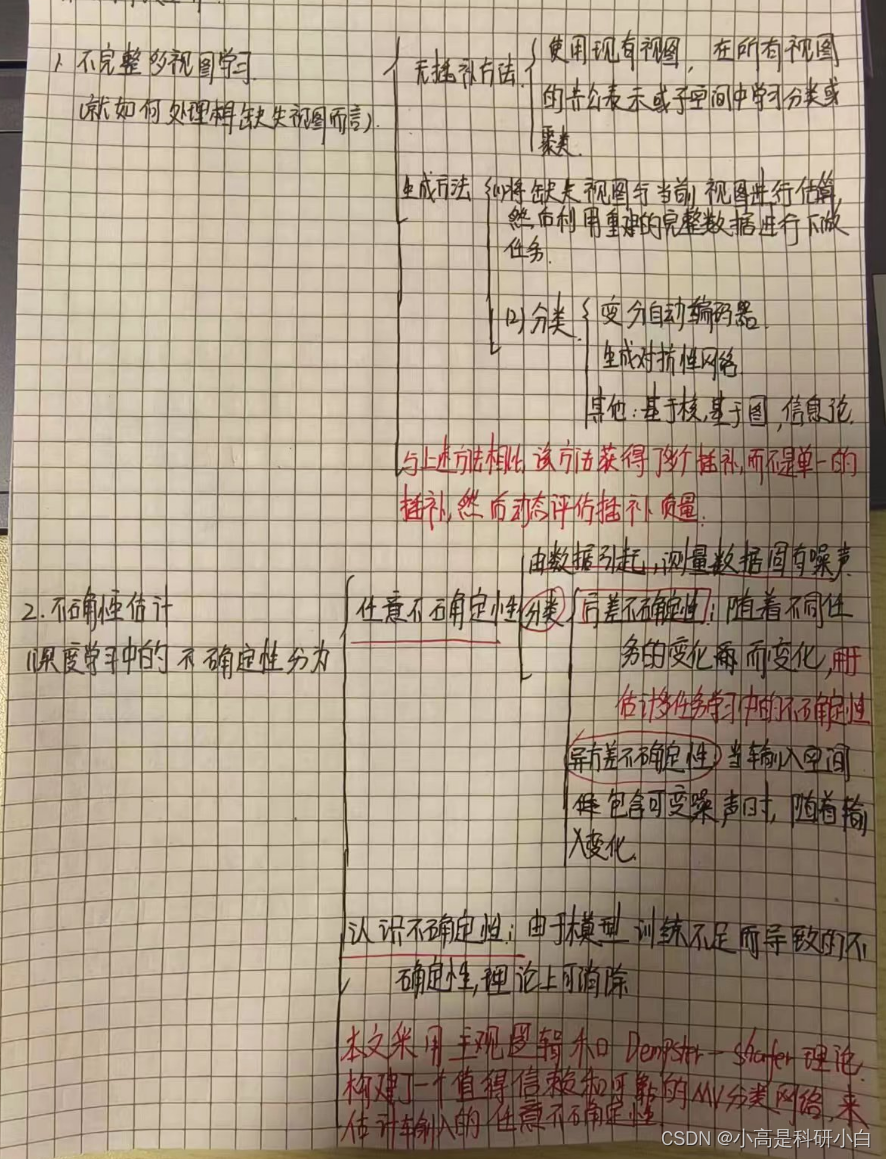 1. 不完整多视图学习
(就如何处理缺失视图而言).
无插补方法
使用现有视图, 在所有视图
的公共表示或子空间中学习分类或
聚类.
生成方法
(1)将缺失视图与当前视图进行估算,
然后利用重建的完整数据进行下做
任务.
(2)分类
变分自动编码器.
生成对抗性网络
其他: 基于核, 基于图, 信息论.
与上述方法相比, 该方法获得了多个插补, 而不是单一的
插补, 然后动态评估插补质量.
2. 不确性估计
(1)深度学习中的不确定性分为
任意不确定性
由数据引起, 测量数据固有噪声
分类
同差不确定性: 随着不同任
务的变化而变化, 用于
估计多任务学习中的不确定性
异方差不确定性: 当输入空间
包含可变噪声时, 随着输
入变化.
认识不确定性: 由于模型训练不足而导致的不
确定性, 理论上可消除
本文采用主观逻辑和Dempster-Shafer理论.
构建了一个值得信赖和可靠的MV分类网络, 来
估计输入的任意不确定性.
CSDN @小高是科研小白